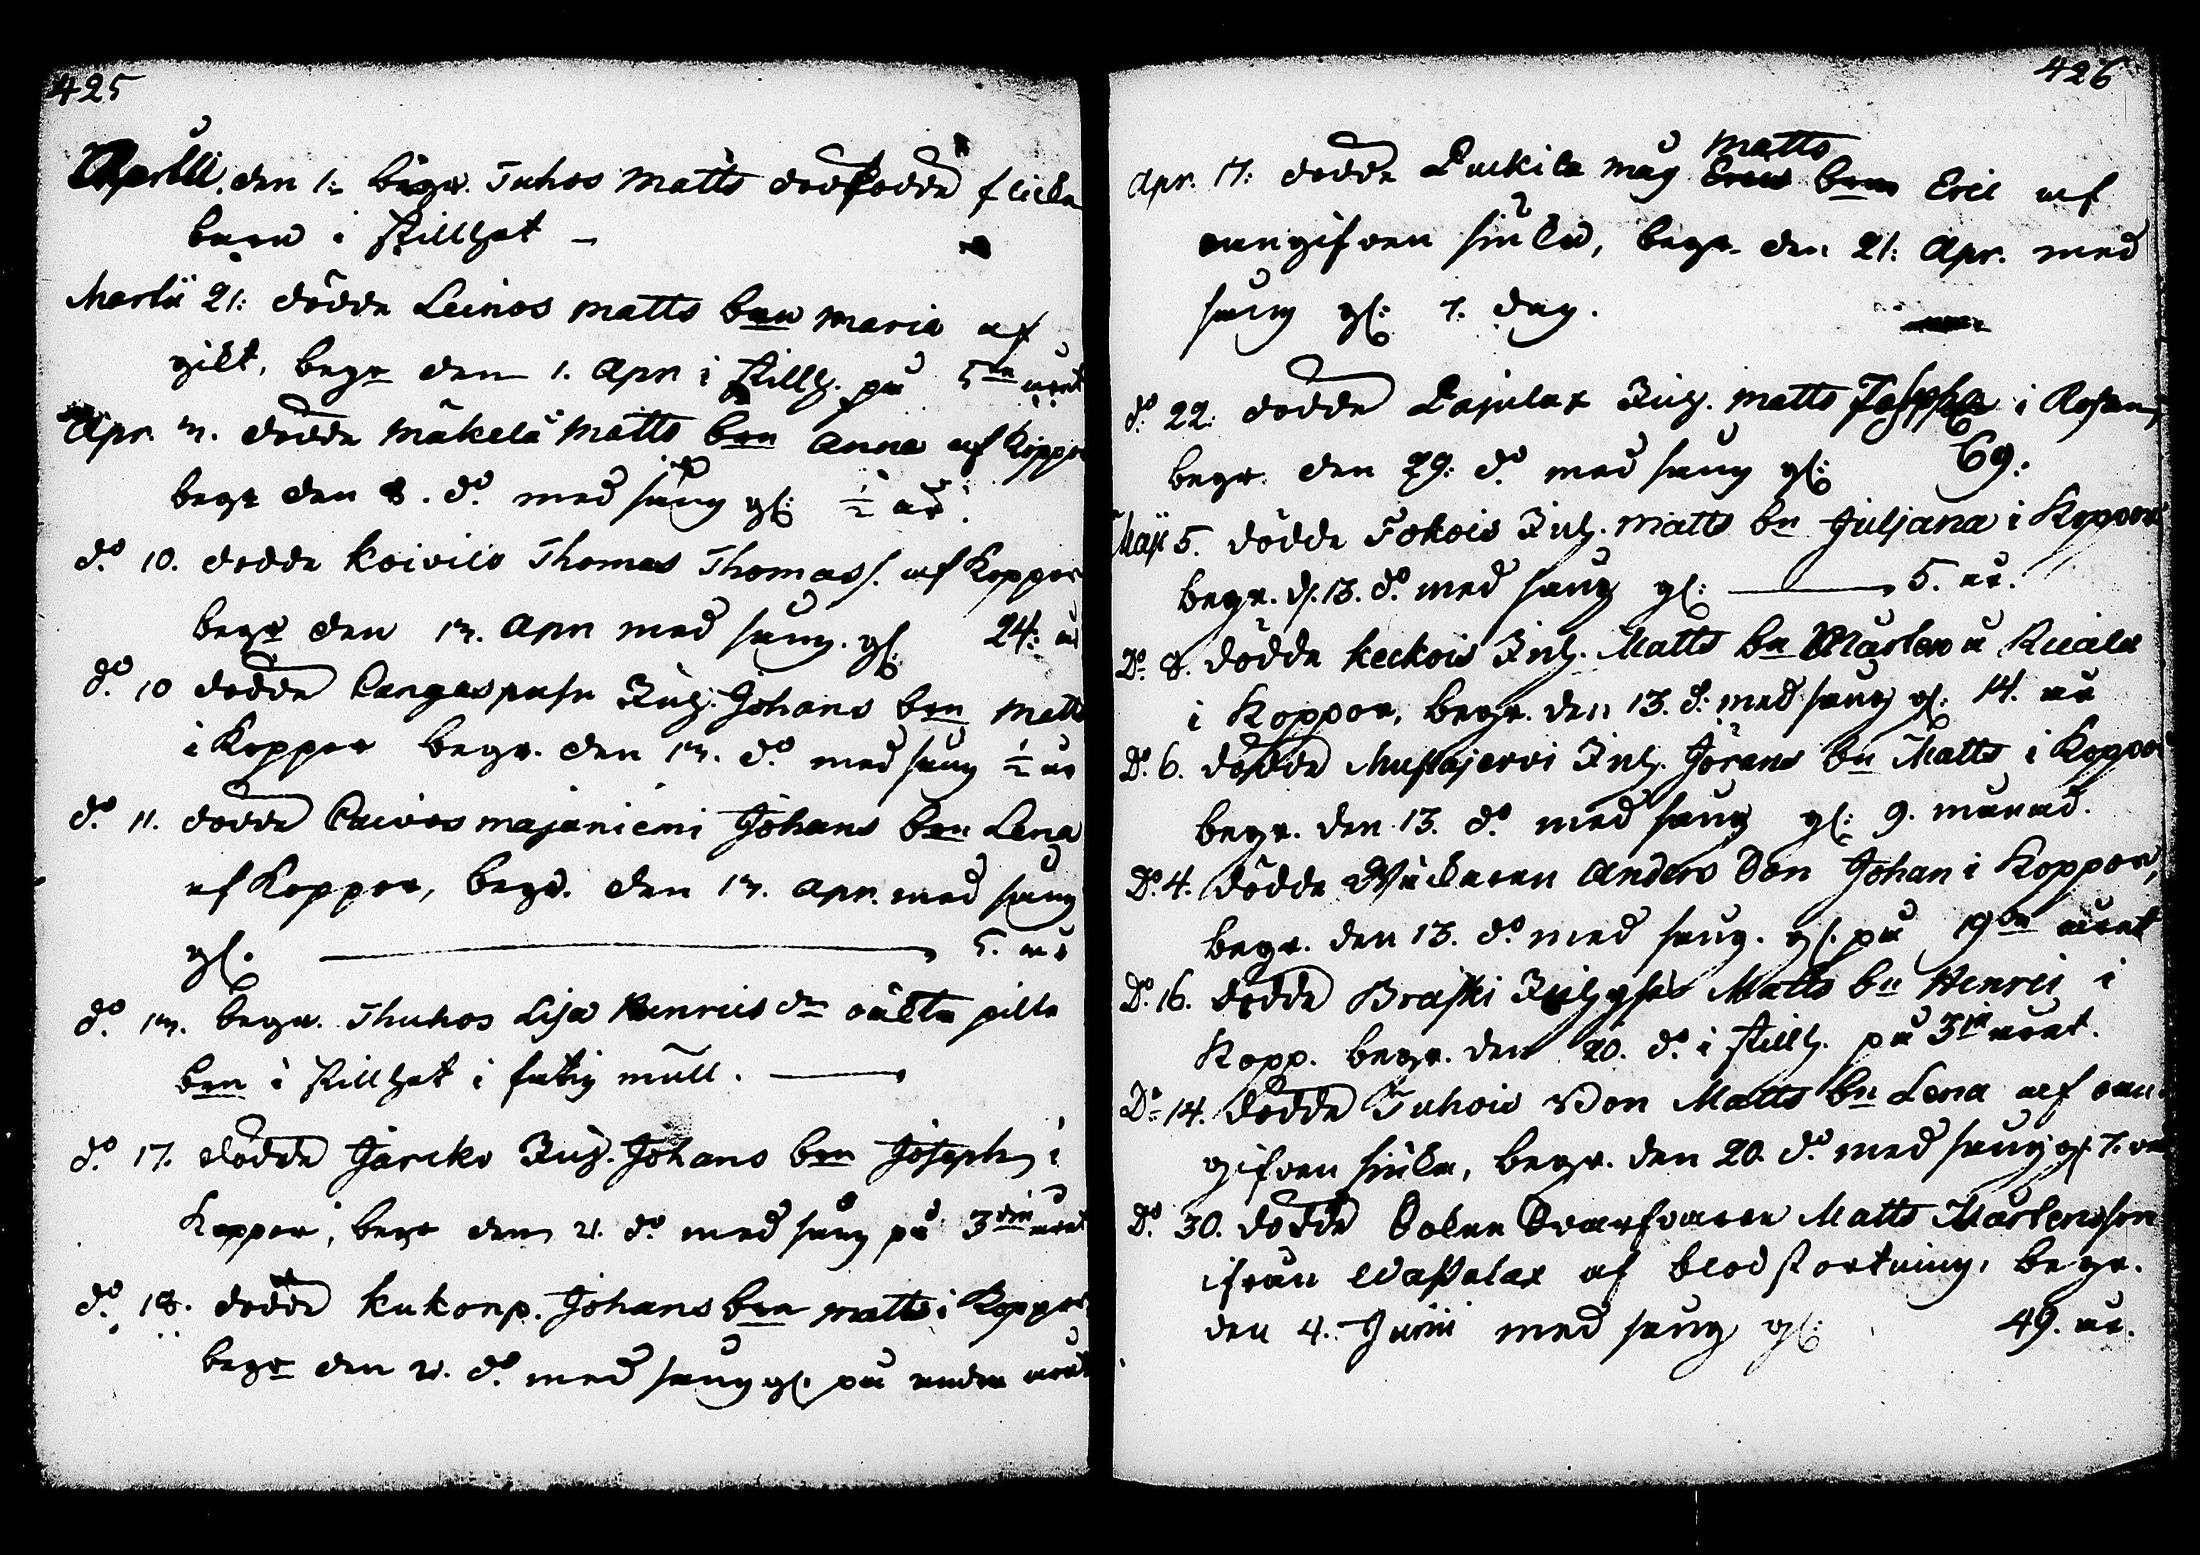 425
Aprill. den 1: begr. Juhos Matts dödfödda flicke
barn i stillhet –
Martii 21: dödde Leinos Matts brn Maria af
gikt, begr den 1. Apr i stillh. på 5te året
Apr. 7. dödde Mäkelä Matts brn Anna af Koppor
begr den 8. do med sång gl: ½ år.
do 10. dödde Koivilo Thomas Thomas s. af Koppor
begr den 17. Apr med sång. gl: 24: år
do. 10 dödde Cangaspasu Inh. Johans brn Matts
i Koppor begr. den 17. do med sång ½ år
do. 11. dödde Johans brn Lena
af Koppor, begr. den 17. apr. med sång
gl. 5. år
do. 17. begr. Juhos Lisa Henrics dr oäkta pilte
brn i stillhet i fatig mull.
do. 17. dödde Jarcko Inh. Johans brn Joseph i
Koppor, begr den 21. do med sång på 3die året
do. 18. dödde Kukonp. Johans brn Matts i Koppor
begr den 21. do. med sång gl. på andra året
426
Apr. 17: dödde Luckila måg Matts brn Eric af
ongifven siuka, begr den 21: Apr. med
sång gl: 7. dag.
do. 22: dödde Inh. Matts i
begr. den 29: do med sång gl: 69:
Maji 5. dödde Tokois Inh. Matts bn Juljana i Koppor
begr. d. 13. do. med sång gl: 5. år.
Do. 8. dödde Keckois Inh. Matts bn Mårten
i Koppor, begr. den 13. d: med sång gl: 14. år
Do. 6. dödde Mustajervi Inh. Jörans bn Matts i Koppor
begr. den 13. do. med sång gl: 9. månad.
Do. 4. dödde Anders Son Johan i Koppor,
begr. den 13. do med sång. gl. på 19de året
Do. 16. dödde Braski Matts bn Henric i
Kopp. begr. den 20. do. i stillh. på 3die året.
Do 14. dödde Juhois Son Matts bn Lena af oan
gifven siuka, begr. den 20. do med sång gl. 7.
Do. 30. dödde Matts Mårtensson
ifrån af blodstörtning, begr.
den 4. Junii med sång gl: 49. år.